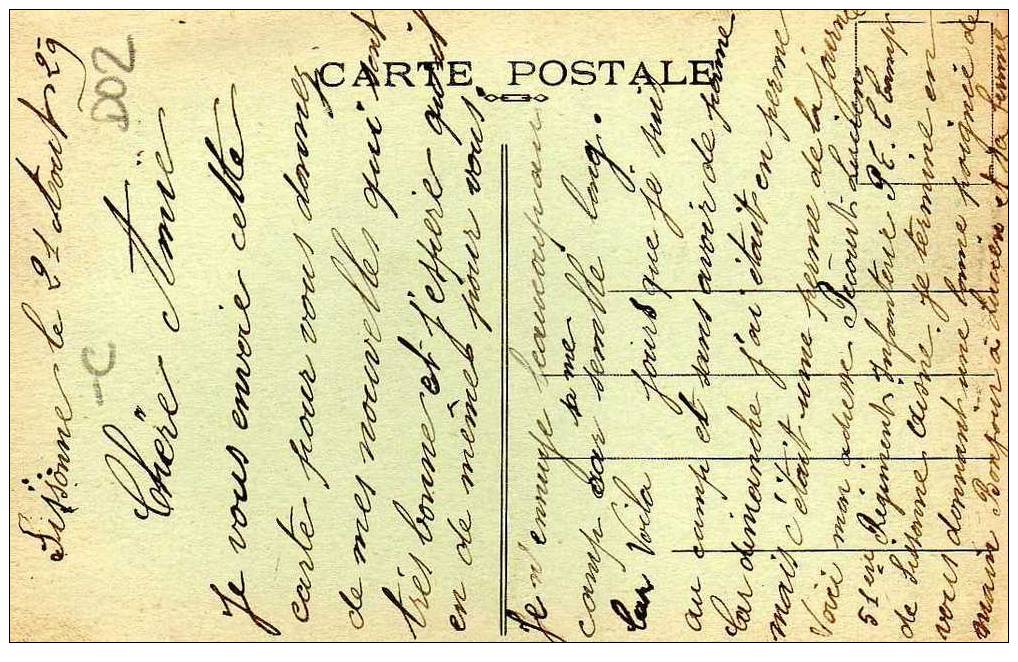 CARTE POSTALE
D02
C
Sissonne le 21 Aout 29
Chère Amie
Je vous envoie cette
carte pour vous donnez
de mes nouvelles qui sont
très bonne et j'espère quoit
en de même pour vous.
Je m'ennuye beaucoup au
camp car sa me semble long.
Car Voila jours que je suis
au camp et sans avoir de perme
Car dimanche j'ai était en perme
mais c'était une perme de la journé
Voici mon adresse Lucien
51ème Régiment Infanterie 9e C Camp
de Sissonne Aisne. Je termine en
vous donnant une bonne poignée de
main Bonjour à Lucien et sa femme